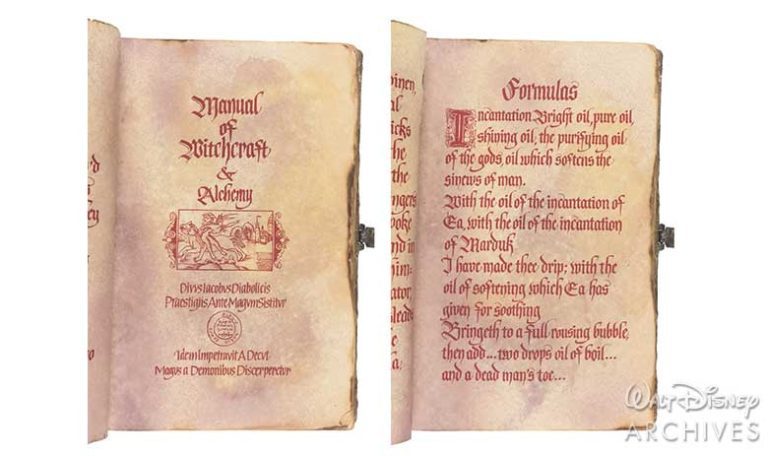 Manual
of
Witchcraft
&
Alchemy
Divvs Iacobus Diabolicis
Praestigiis Ante Magvm Sistitvr
Idem Impetravit A Deo vt
Magus a Demonibus Discerperetvr
Formulas
Incantation Bright oil, pure oil,
shining oil, the purifying oil
of the gods, oil which softens the
sinews of man.
With the oil of the incantation of
Ea, with the oil of the incantation
of Marduk
I have made thee drip; with the
oil of softening which Ea has
given for soothing
Bringeth to a full rousing bubble,
then add... two drops oil of boil...
and a dead man's toe...
WALT DISNEY
ARCHIVES